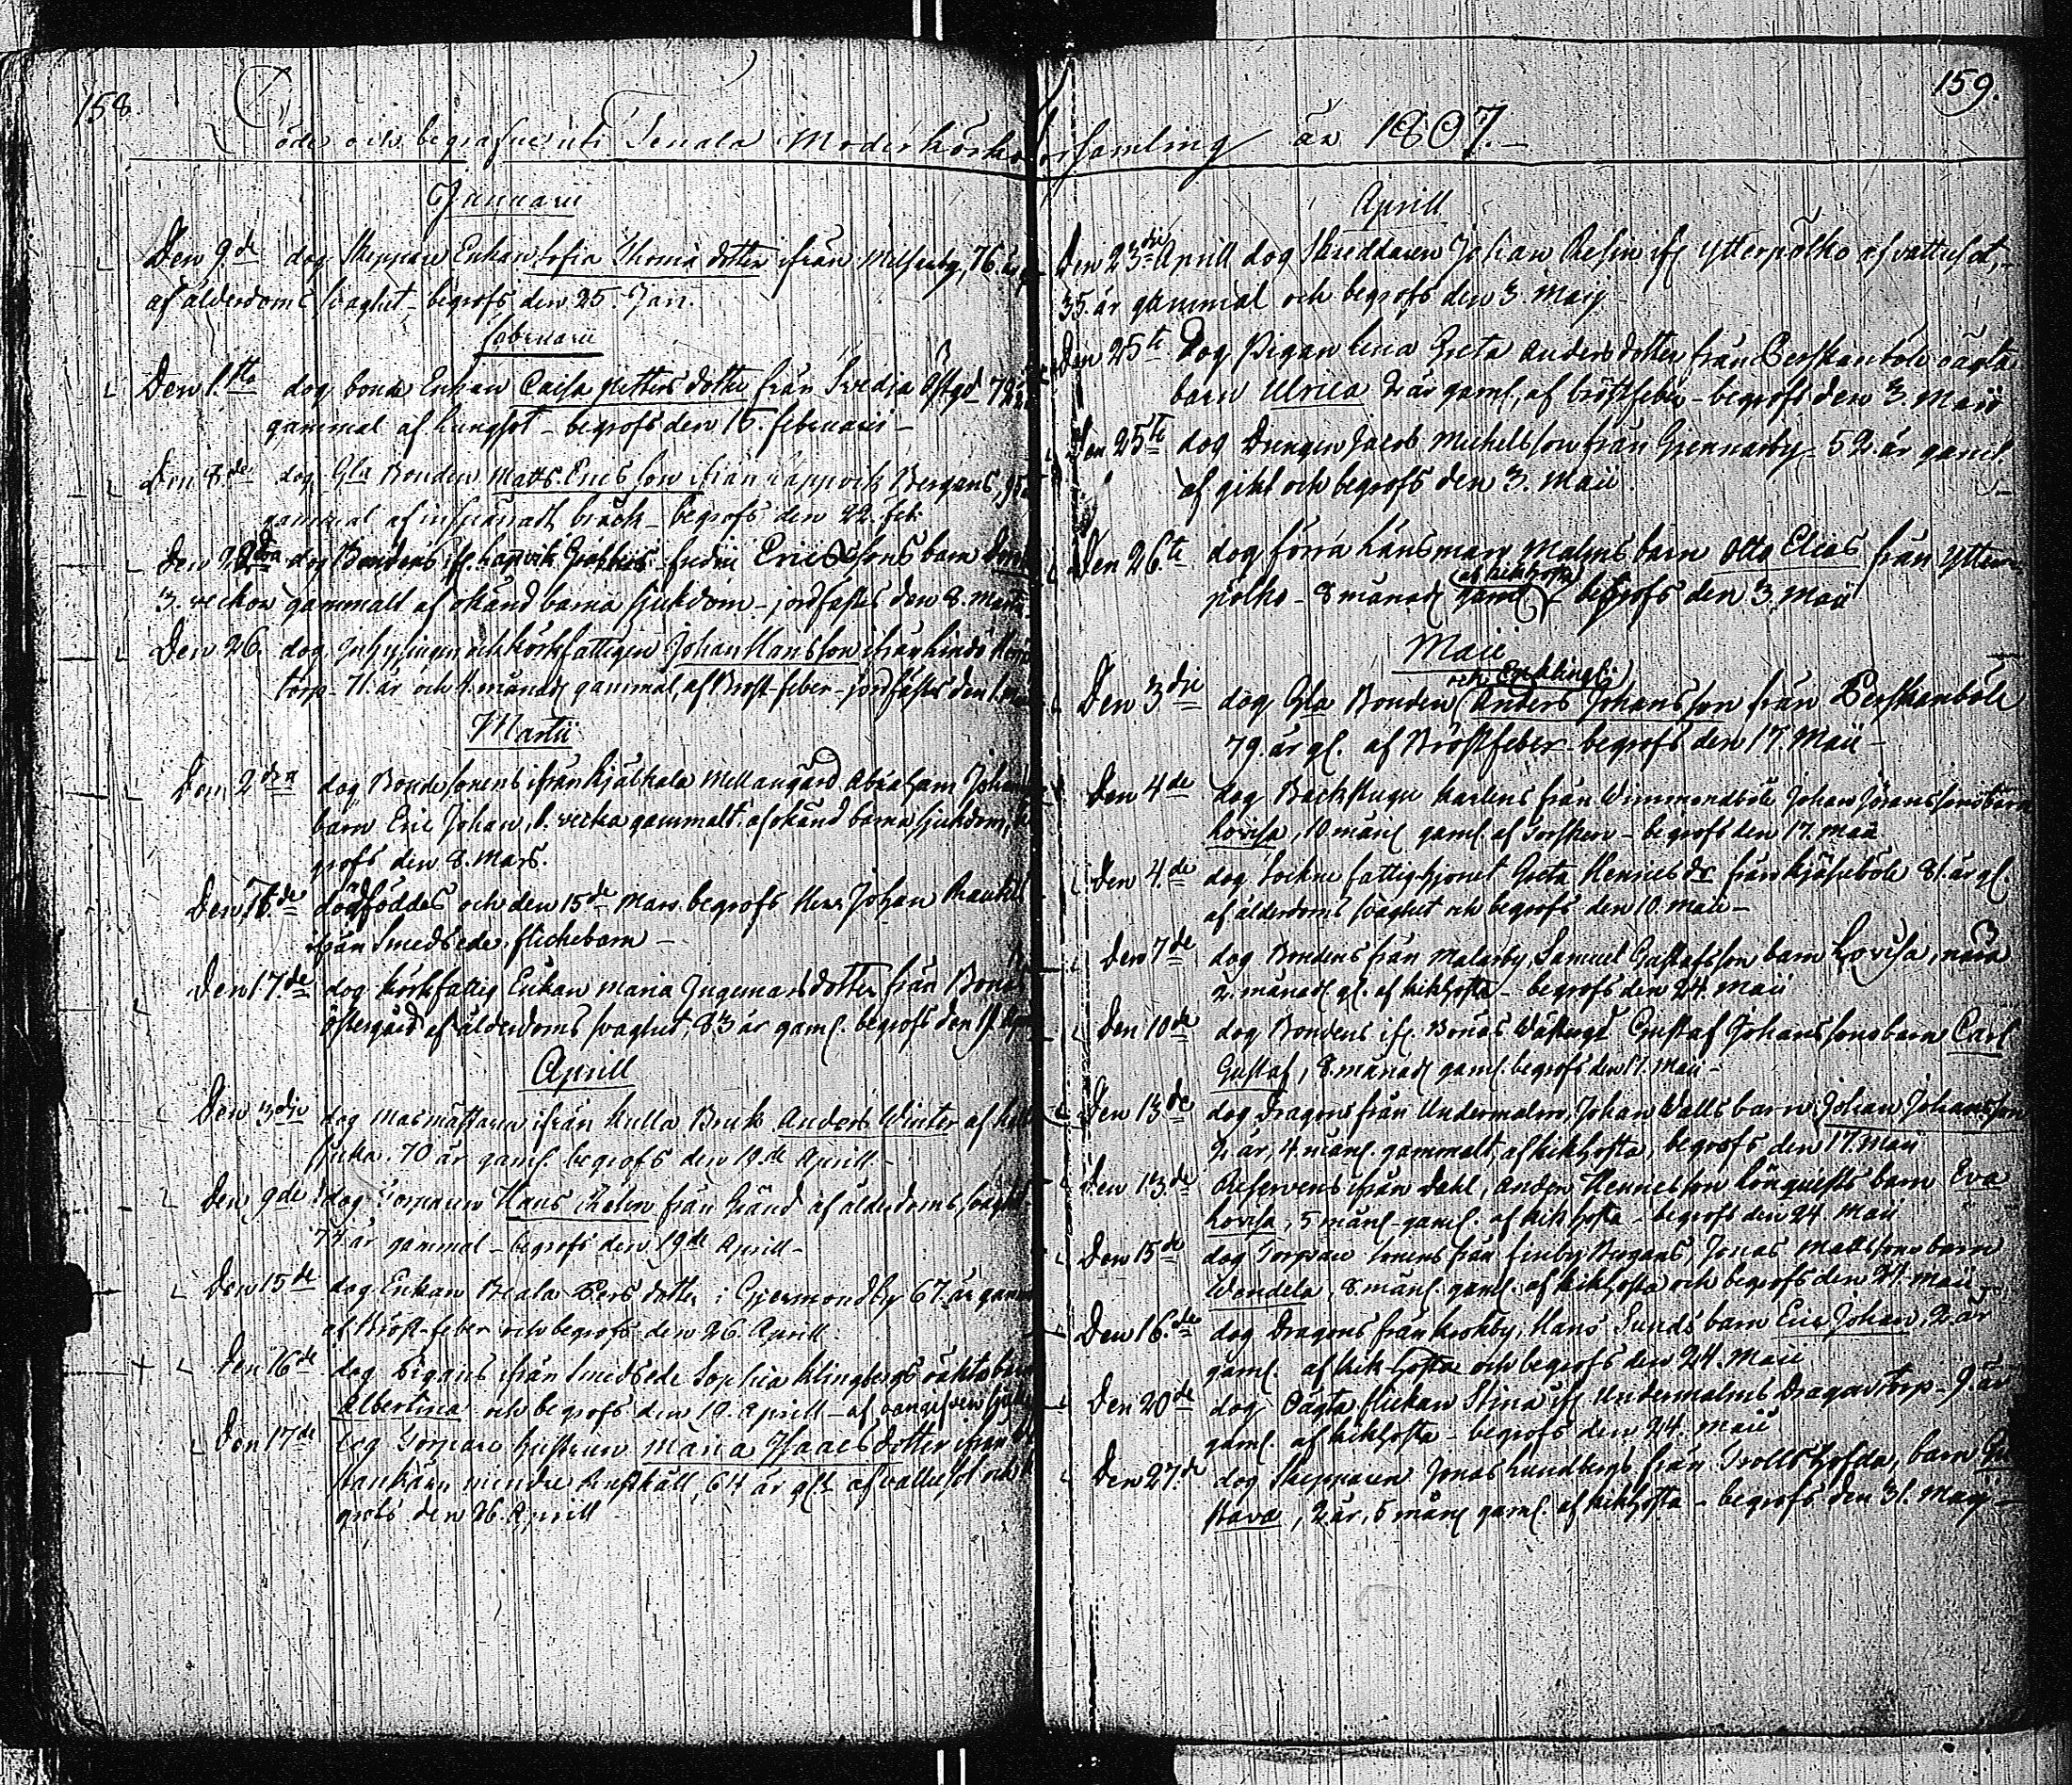 158.
Döde och begrafne uti Tenala Moderkörko
Januarii
Den 9de dog Skeppare Enkan Sofia Thomæ dotter ifrån 76. år
af ålderdoms svaghet - begrofs den 25. Jan.
Februarii
Den 1.sta dog bonde Enkan Caisa Petters dotter från Svedja Östgd 79
gammal af lungsot - begrofs den 15. februarii -
Den 8de dog Gla Bonden Matts Ericsson ifrån Lappvik Bergans,
gammal af bråck - begrofs den 22. feb.
Den dog Bondens Lappvik fredric Ericssons barn
3. veckor gammalt af okänd barna sjukdom - jordfästes den 8. Martii
Den 26. dog Inhysingen och körkfattigen Johan Hansson ifrån
torp - 71. år och 4. månad gammal, af Bröst-feber - jordfästes den 1.
Martii
Den 2dra dog Bondesonens ifrån Kjälkala Mellangård Abraham Johan
barn Eric Johan, 1. vecka gammalt, af okänd barna sjukdom,
grofs den 8. Mars.
Den dödföddes och den 15de Mars begrofs Herr Johan
ifrån Smedsede flickebarn -
Den 17.de dog körkfattig Enkan Maria Ingemars dotter från
Östergård af ålderdoms svaghet, 83 år gaml. begrofs den
Aprill
Den 3dje dog Masmästaren ifrån Kulla Bruk Anders Winter af
sjuka. 70 år gaml. begrofs den 19.de Aprill -
Den 9de dog Torparen Hans från Gränd af ålderdoms svaghet
74 år gammal - begrofs den 19de Aprill -
Den 15de dog Enkan Beata Pers dotter i Gjermundby 67. år gammal
af Bröst-feber och begrofs den 26. Aprill.
Den 16de dog Pigans ifrån Smedsede Sophia Klingbergs oäkta barn
Albertina och begrofs den 19. Aprill - af oangifven
Den 17de dog Torpare hustrun Maria Isaacs dotter ifrån
mindre 64 år gl. af vattusot och
grofs den 26. Aprill
159.
församling år 1807. -
Aprill
Den 23die Aprill dog Skreddaren Johan ifr. Ytterpölko af vattusot, -
35. år gammal och begrofs den 3. Maij
Den 25te dog Pigan Lena Greta Andersdotter från Perskanböle oägta
barn Ulrica 2 år gaml, af bröstfeber - begrofs den 3. Maii
Den 25te dog Drengen Jacob Michelsson från Grennarby - 52. år gaml.
af gikt och begrofs den 3. Maii
Den 26te dog förra länsman Malms barn Otto Elias från Ytter-
pölko - 8 månad gaml (af kikhosta) - begrofs den 3. Maii
Maii
Den 3die dog Gla Bonden (och Enklingen) Anders Johansson från Perskanböle
79. år gl. af Bröstfeber - begrofs den 17. Maii -
Den 4de dog Backstugu karlens från Johan Göranssons barn
Lovisa, 10. mån gaml. af Torsken - begrofs den 17. Maii
Den 4.de dog Sockne fattighjonet Greta Henricsdr från 81. år gl.
af ålderdoms svaghet och begrofs den 10. Maii -
Den 7de dog Bondens från Malarby, Samuel Gustafsson barn Lovisa, nära
2. månad gl. af kikhosta - begrofs den 24. Maii
Den 10de dog Bondens ifr. Bonäs Wästergd Gustaf Johanssons barn Carl
Gustaf, 8. månad gaml. begrofs den 17. Maii -
Den 13de dog Dragons från Undermalm, Johan Walls barn Johan Johansson
2 år, 4. mån. gammalt, af kikhosta, begrofs den 17. Maii
Den 13.de Reservens ifrån Dahl, Anders Henricsson Lönqvists barn Eva
Lovisa, 5 mån - gaml. af kikhosta - begrofs den 24. Maii
Den 15de dog Torpare sonens från Finby Bergans, Jonas Mattssons barn
Wendela, 8. mån. gaml. af kikhosta och begrofs den 24. Maii
Den 16.de dog Dragons från Krokby, Hans Sunds barn Eric Johan, 2 år
gaml. af kik-hosta och begrofs den 24. Maii
Den 20de dog Oägta flickan Stina ifr. Undermalms Dragontorp - 9. år
gaml. af kikhosta - begrofs den 24. Maii
Den 27.de dog Skepparen Jonas Lundbergs från Trollshofda, barn Gu
stava, 2 år, 5 mån gaml. af kikhosta - begrofs den 31. Maij -